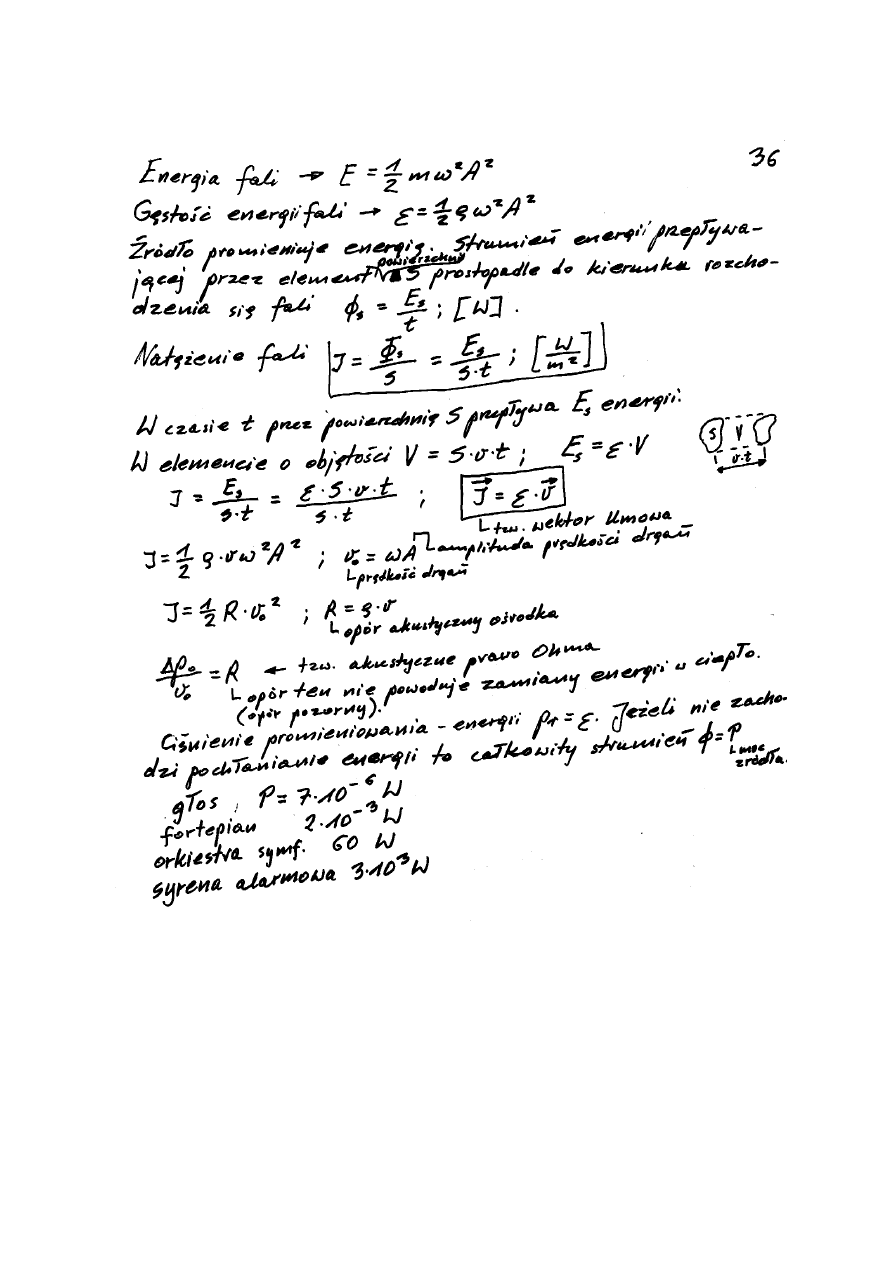 36
Energia fali → E = 1/2 mω²A²
Gęstość energii fali → ε = 1/2 ρω²A²
Źródło promieniuje energię. Strumień energii przepływa-
jącej przez element powierzchni S prostopadle do kierunku rozcho-
dzenia się fali ϕs = Es/t ; [W].
Natężenie fali J = Φs/S = Es/S·t ; [W/m²]
W czasie t przez powierzchnię S przepływa Es energii.
W elemencie o objętości V = S·v·t ; Es = ε·V
S V
v·t
J = Es/S·t = ε·S·v·t/S·t ; J⃗ = ε·v⃗
tzw. wektor Umowa
J = 1/2 ρ·vω²A² ; v₀ = ωA amplituda prędkości drgań
prędkość drgań
J = 1/2 R·v₀² ; R = ρ·v
opór akustyczny ośrodka
Δp₀/v₀ = R ← tzw. akustyczne prawo Ohma
opór ten nie powoduje zamiany energii w ciepło.
(opór pozorny).
Ciśnienie promieniowania - energii pr = ε. Jeżeli nie zacho-
dzi pochłanianie energii to całkowity strumień ϕ = P
moc
źródła.
głos, P = 7·10⁻⁶ W
fortepian 2·10⁻³ W
orkiestra symf. 60 W
syrena alarmowa 3·10³ W